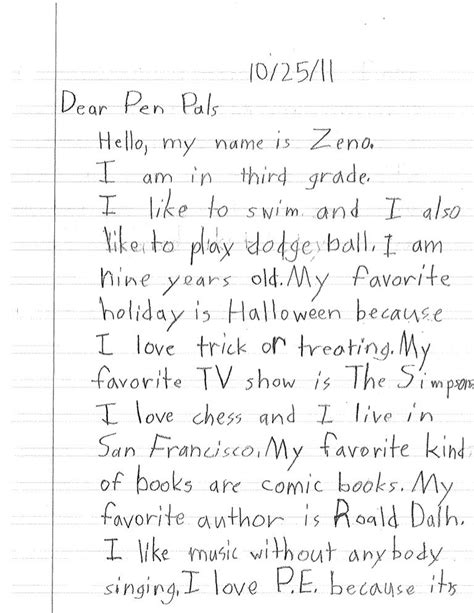 10/25/11
Dear Pen Pals
Hello, my name is Zeno.
I am in third grade.
I like to swim and I also
like to play dodge ball. I am
nine years old. My favorite
holiday is Halloween because
I love trick or treating. My
favorite TV show is The Simpsons
I love chess and I live in
San Francisco. My favorite kind
of books are comic books. My
favorite author is Roald Dalh.
I like music without anybody
singing. I love P.E. because its